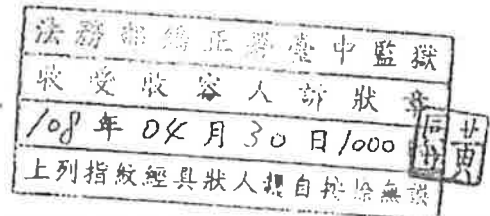 法務部矯正署臺中監獄
收受收容人訴狀章
108年04月30日1000
上列指紋經具狀人親自按捺無誤
黃